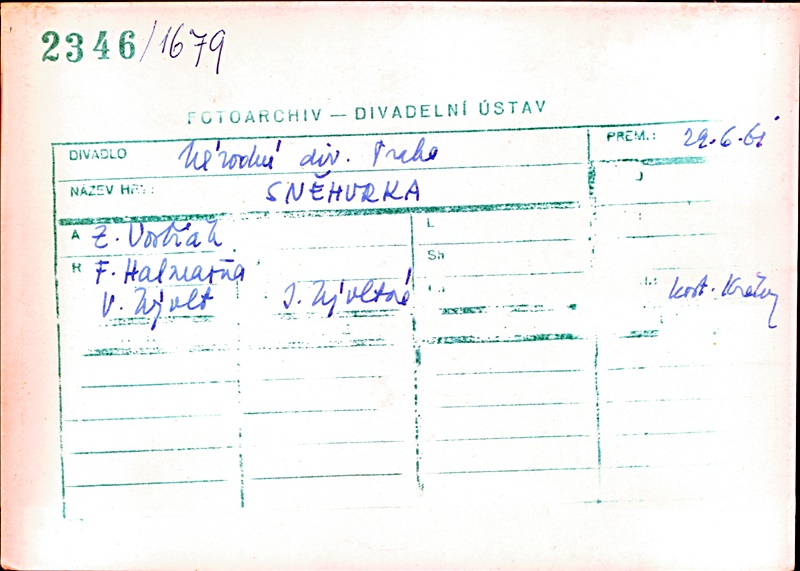 2346/1679
FOTOARCHIV — DIVADELNÍ ÚSTAV
DIVADLO Národní div. Praha PREM.: 29.6.61
NÁZEV HRY: SNĚHURKA
A Z. Vostřák L
R F. Halmazňa Sh
V. Zývolt J. Zývoltová kost. Královny